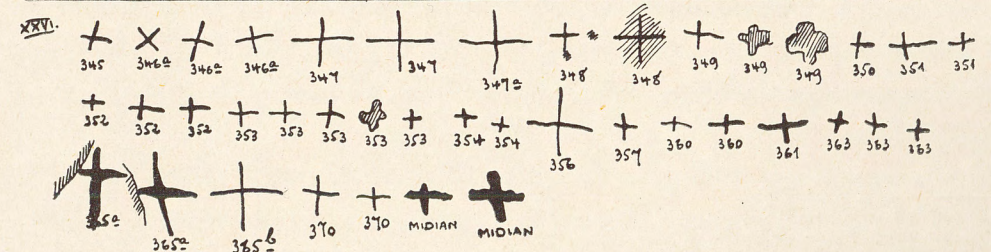 XXVI.
345 346a 346a 346a 347 347 347a 348 348 349 349 349 350 351 351
352 352 352 353 353 353 353 353 354 354 356 357 360 360 361 363 363 363
365a 365a 365b 370 370 MIDIAN MIDIAN